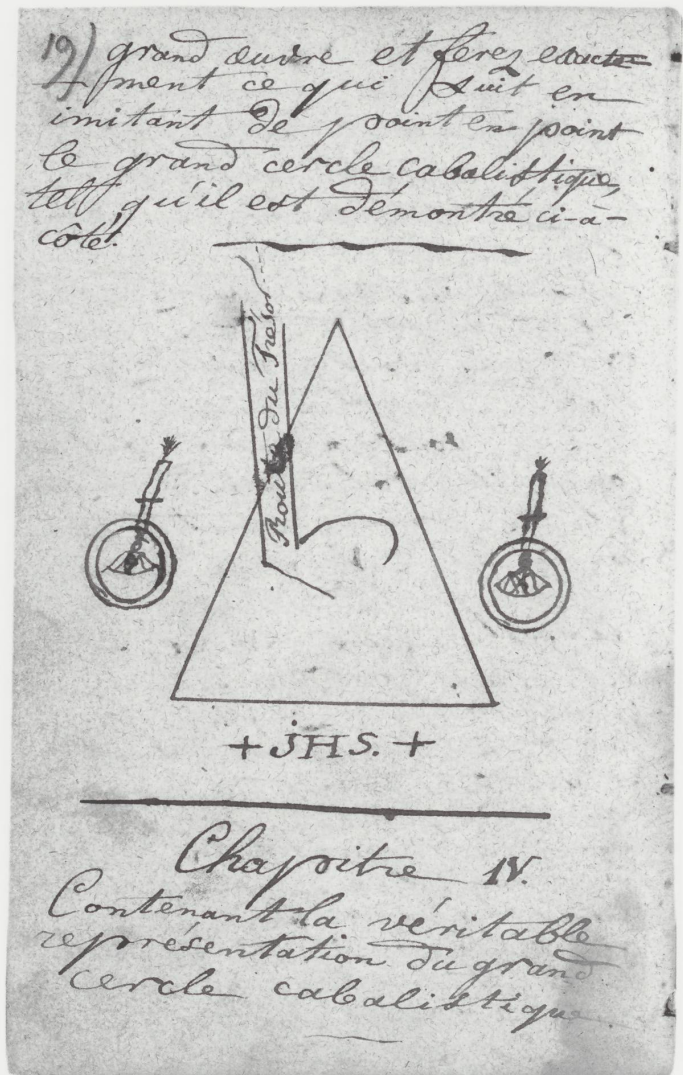 19)
grand œuvre et ferez exacte=
ment ce qui suit en
imitant de point en point
le grand cercle cabalistique,
tel qu'il est démontré ci-à-
côté.
Route du Trésor
+ JHS. +
Chapitre IV.
Contenant la véritable
représentation du grand
cercle cabalistique